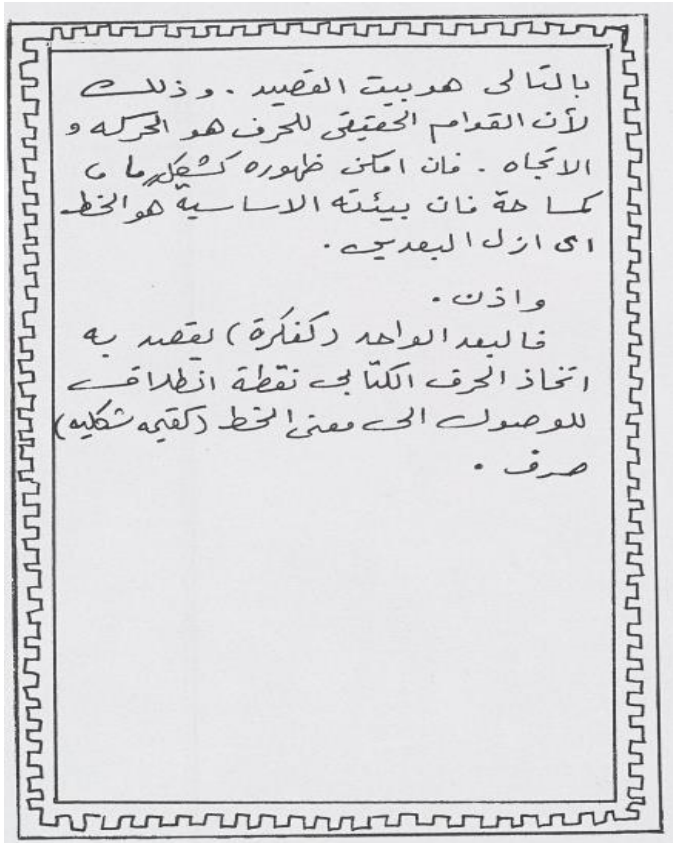 بالتالى هو بيت القصيد . وذلك
لأن القوام الحقيقى للحرف هو الحركه و
الاتجاه . فان امكن ظهوره كشكل ما ،
كمساحة فان بيئته الاساسية هو الخط
اى ازل البعدين .
واذن .
فالبعد الواحد (كفكرة) يقصد به
اتخاذ الحرف الكتابى نقطة انطلاق
للوصول الى معنى الخط (كقيمه شكليه)
صرف .